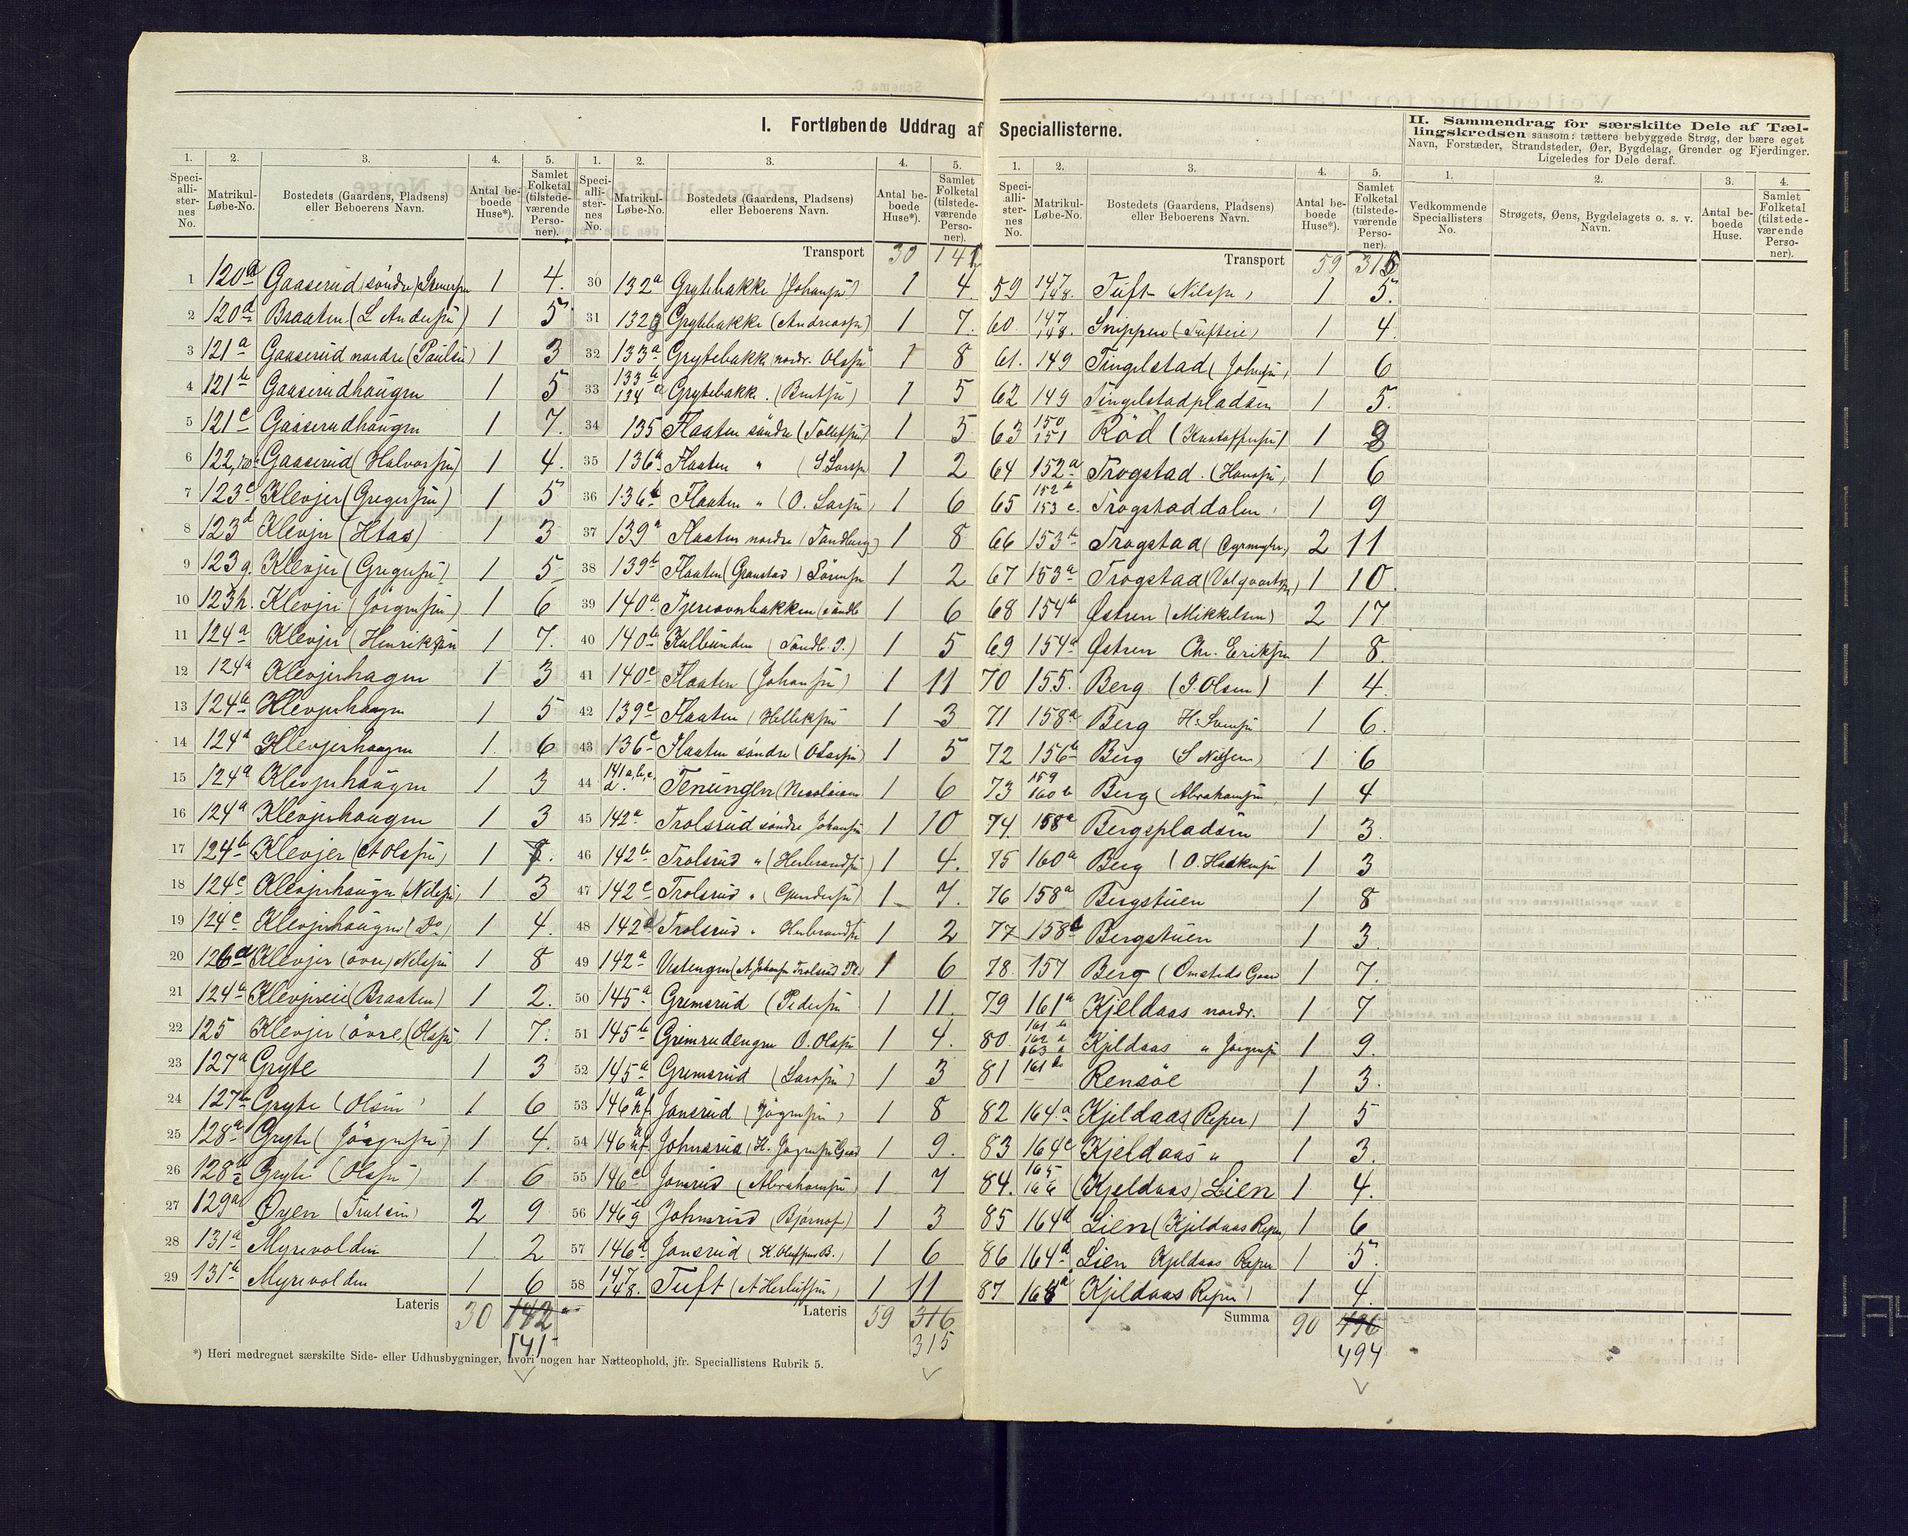 I. Fortløbende Uddrag af Speciallisterne.
II. Sammendrag for særskilte Dele af Tællingskredsen saasom: tættere bebyggede Strøg, der bære eget
Navn, Forstæder, Strandsteder, Øer, Bygdelag, Grender og Fjerdinger.
Ligeledes for Dele deraf.
1. 2. 3. 4. 5.
Speciallisternes No. Matrikul-Løbe-No. Bostedets (Gaardens, Pladsens) eller Beboerens Navn. Antal beboede Huse*). Samlet Folketal (tilstedeværende Personer).
1 120a Gaaserud søndre 1 4.
2 120d Braaten (L Andersen) 1 5
3 121a Gaaserud nordre (Paulsen) 1 3
4 121b Gaaserudhaugen 1 5
5 121c Gaaserudhaugen 1 7.
6 122, Gaaserud (Halvorsen) 1 4.
7 123c Klevjer (Gregersen) 1 5
8 123d Klevjer (Htas) 1 3
9 123g. Klevjer (Gregersen) 1 5
10 123h. Klevjer (Jörgensen) 1 6
11 124a Klevjer (Henriksen 1 7.
12 124a Klevjerhagen 1 3
13 124b Klevjerhaugen 1 5
14 124a Klevjerhaugen 1 6
15 124a Klevjerhaugen 1 3
16 124a Klevjerhaugen 1 3
17 124b Klevjer (A Olsen) 1
18 124c Klevjerhaugen (Nilsen) 1 3
19 124c Klevjerhaugen (Do) 1 4.
20 126d Klevjer (övre) Nilsen 1 8
21 124a Klevjereie (Braaten) 1 2.
22 125 Klevjer (övre, (Olsen 1 7.
23 127a Gryte 1 3
24 127b Gryte (Olsen) 1 6
25 128a Gryte (Jörgensen) 1 4.
26 128b Gryte (Olsen) 1 6
27 129a Oyen (Trulsen) 2 9
28 131a Myrevolden 1 2
29 131b Myrevolden 1 6
Lateris 30 142
141
*) Heri medregnet særskilte Side- eller Udhusbygninger, hvori nogen har Natteophold, jfr. Speciallistens Rubrik 5.
1. 2. 3. 4. 5.
Speciallisternes No. Matrikul-Løbe-No. Bostedets (Gaardens, Pladsens) eller Beboerens Navn. Antal beboede Huse*). Samlet Folketal (tilstedeværende Personer).
Transport 30 141
30 132a Grytebakke (Johansen) 1 4.
31 132 Grytebakke (Andreasen) 1 7.
32 133a Grytebakke nordr. Olsen 1 8
33 133b 134 Grytebakk. (Berntsen) 1 5
34 135 Flaaten søndre (Tollefsen) 1 5
35 136a Flaaten " (S Larsen 1 2
36 136b Flaaten " (O. Larsen) 1 6
37 139a Flaaten nordre (Sandberg) 1 8
38 139b Flaaten (Granstad) Sörensen 1 2
39 140a Tjernovnbakken 1 6
40 140b Kulbunden (Sandb. P.) 1 5
41 140c Flaaten (Johansen) 1 11
42 139c Flaaten (Helleksen 1 3
43 136c Flaaten søndre (O Larsen) 1 5
44 141a,b,c, d. Tenungen (Nicolaisen 1 6
45 142a Trolsrud søndre Johansen 1 10
46 142b Trolsrud " (Herbrandsen) 1 4.
47 142c Trolsrud " (Gundersen) 1 7.
48 142d Trolsrud " Herbrandsen 1 2
49 142a Vestengen (A Johansen Trolsrud 1 6
50 145a Gremsrud (Pedersen 1 11.
51 145b Gremrudengen O. Olsen 1 4.
52 145a Gremsrud (Larsen) 1 3
53 146 Jonsrud (Jörgensen) 1 8
54 146 Johnsrud (H. Jörgensen 1 9.
55 146 Jonsrud (Abrahamsen) 1 7
56 146 Johnsrud (Bjørnof) 1 3
57 146d Jonsrud (K. Oluffsen B.) 1 6
58 147 148. Tuft (A Herlufsen) 1 11
Lateris 59 316
315
1. 2. 3. 4. 5.
Speciallisternes No. Matrikul-Løbe-No. Bostedets (Gaardens, Pladsens) eller Beboerens Navn. Antal beboede Huse*). Samlet Folketal (tilstedeværende Personer).
Transport 59 315
59 147 148. Tuft (Nilsen) 1 5.
60. 147 148. Snippen (Tufteie) 1 4.
61. 149 Tingelstad (Johnsen) 1 6
62 149 Tingelstadpladsen 1 5.
63 150 151 Röd (Kristoffersen) 1 8
64 152a Trogstad (Hansen) 1 6
65 152b 153c. Trogstaddalen 1 9
66 153b Trogstad 2 11
67 153a Trogstad (Volqvartsen) 1 10.
68 154b Østren (Mikkelsen) 2 17
69 154a Østren Chr. Eriksen 1 8.
70 155. Berg (P. Olsen) 1 4.
71 158a Berg H. Svensen 1 6.
72 156b Berg (S Nilsen) 1 6
73 159 160b Berg (Abrahamsen 1 4
74 158a Bergspladsen 1 3.
75 160a Berg (O. Haakensen 1 3
76 158a Bergstuen 1 8
77 158 Bergstuen 1 3.
78. 157 Berg (Omsteds Gaard 1 7.
79 161a Kjeldaas nordr. 1 7
80. 161b 162a 163a Kjeldaas " Jorgensen 1 9.
81 161b Rensöe 1 3.
82 164.a Kjeldaas (Reper) 1 5
83 164c Kjeldaas " 1 3.
84. 165 166 (Kjeldaas) Lien 1 4.
85 164d Lien (Kjeldaas Reper) 1 6
86 164d Lien Kjeldaas Reper 1 5
87 168a Kjeldaas Reper) 1 4.
Summa 90 496
494
1. 2. 3. 4.
Vedkommende Speciallisters No. Strøgets, Øens, Bygdelagets o. s. v. Navn. Antal beboede Huse. Samlet Folketal (tilstedeværende Personer).